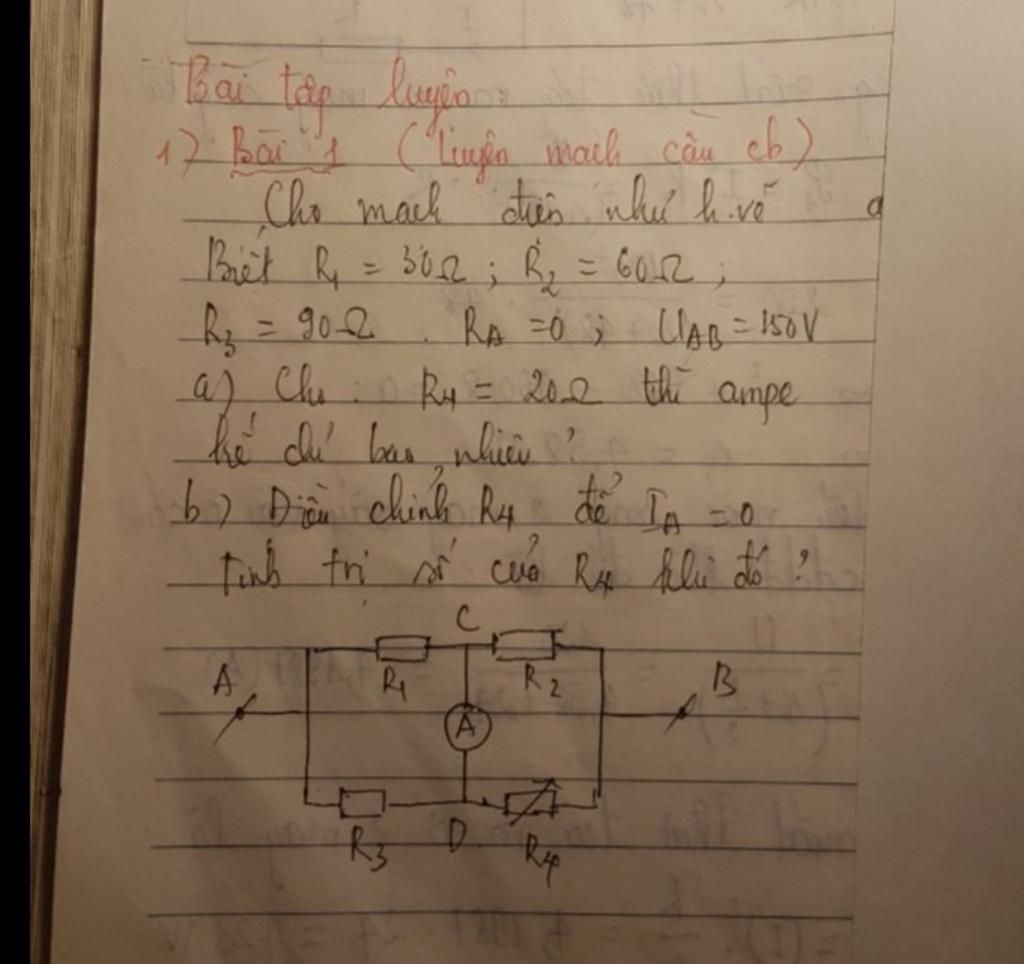 Bài tập luyện:
1) Bài 1 (Luyện mạch cầu cb)
Cho mạch điện như h.vẽ
Biết R1 = 30Ω ; R2 = 60Ω ;
R3 = 90Ω . RA = 0 ; UAB = 150V
a) Cho : R4 = 20Ω thì ampe
kế chỉ bao nhiêu ?
b) Điều chỉnh R4 để IA = 0
Tính trị số của R4 khi đó ?
C
A R1 R2 B
A
R3 D R4